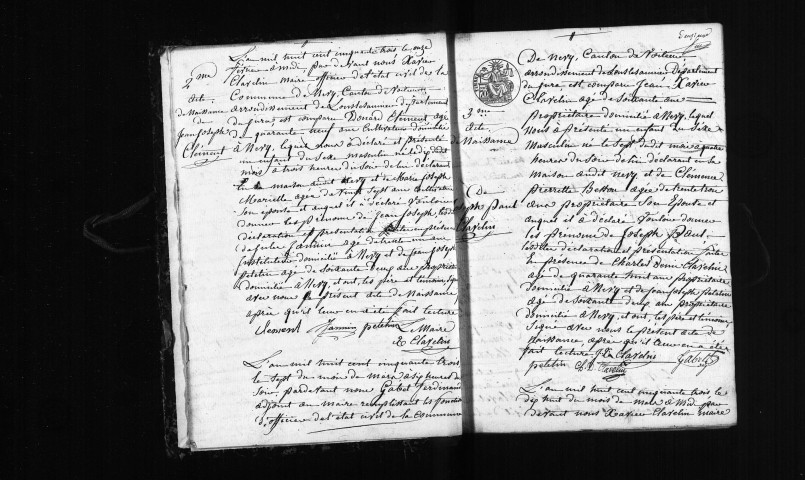 L'an mil huit cent cinquante trois le onze
février à midi, par devant nous Xavier
Clavelin maire officier de l'état civil de la
2me
acte
de Naissance
de
Jean Joseph
Clément
Commune de Nevy, Canton de Voiteur
arrondissement de Lonslesaunier Département
du jura, est comparu Clément agé
de quarante neuf ans Cultivateur domicilié
à Nevy, lequel nous a déclaré et présenté
un enfant du Sexe masculin né le dix dudit
mois à trois heures du soir de lui déclarant
en sa maison audit Nevy et de Marie Joseph
agée de vingt Sept ans Cultivatrice
Son épouse et auquel il a déclaré vouloir
donner les prénoms de Jean Joseph, lesdites
déclaration et présentation faite en présence
de Jules Jannin agé de trente un ans
Instituteur domicilié à Nevy et de Jean Joseph
petetin agé de Soixante deux ans propriétaire
domicilié à Nevy, et ont, les père et témoins, signé
avec nous le présent acte de Naissance,
après qu'il leur en a été fait lecture
Clement Jannin petetin Maire
Clavelin
L'an mil huit cent cinquante trois
le Sept du mois de mars à Six heures du
Soir, pardevant nous Gabet Ferdinand
adjoint au maire remplissant les fonctions
d'officier de l'état civil de la Commune
De Nevy, Canton de Voiteur,
arrondissement de Lonslesaunier Département
du jura, est comparu Jean Xavier
Clavelin agé de Soixante ans
3me
acte
de Naissance
de
Joseph Paul
Clavelin
Propriétaire domicilié à Nevy, lequel
Nous a présenté un enfant du Sexe
Masculin né le Sept dudit mois à quatre
heures du Soir de lui déclarant en sa
Maison audit Nevy et de Clémence
Pierrette agée de trente trois
ans propriétaire Son Epouse et
auquel il a déclaré Vouloir donner
les prénoms de Joseph Paul,
lesdites déclaration et présentation faite
en présence de Charles Clavelin
agé de quarante huit ans propriétaire
Domicilié à Nevy et de Jean Joseph Petetin
agé de Soixante deux ans propriétaire
domicilié à Nevy, et ont, les père et témoins
Signé avec nous le présent acte de
Naissance, après qu'il leur en a été
fait lecture Clavelin Gabet
petetin Clavelin
L'an mil huit cent cinquante trois le
dix huit du mois de mars à Midi par
devant nous Xavier Clavelin maire